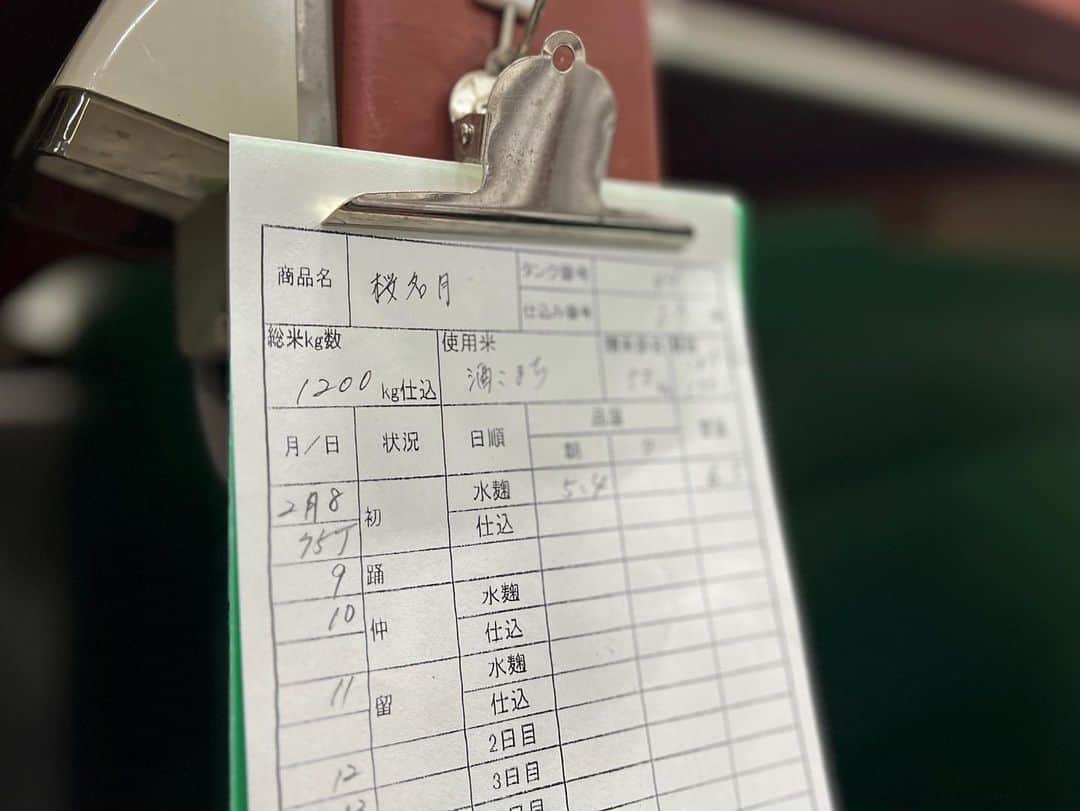 商品名 桜名月 タンク番号
仕込み番号
総米kg数 使用米
1200 kg仕込 酒こまち
月／日 状況 日順 品温
朝 夕
2月8 初 水麹 5.4
仕込
9 踊
10 仲 水麹
仕込
11 留 水麹
仕込
2日目
12 3日目
13